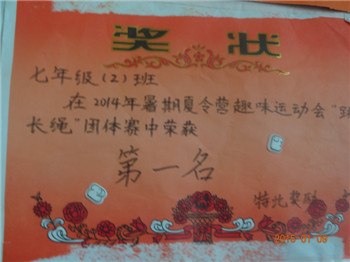 奖状
七年级(2)班
在2014年暑期夏令营趣味运动会"跳
长绳"团体赛中荣获
第一名
特此奖励